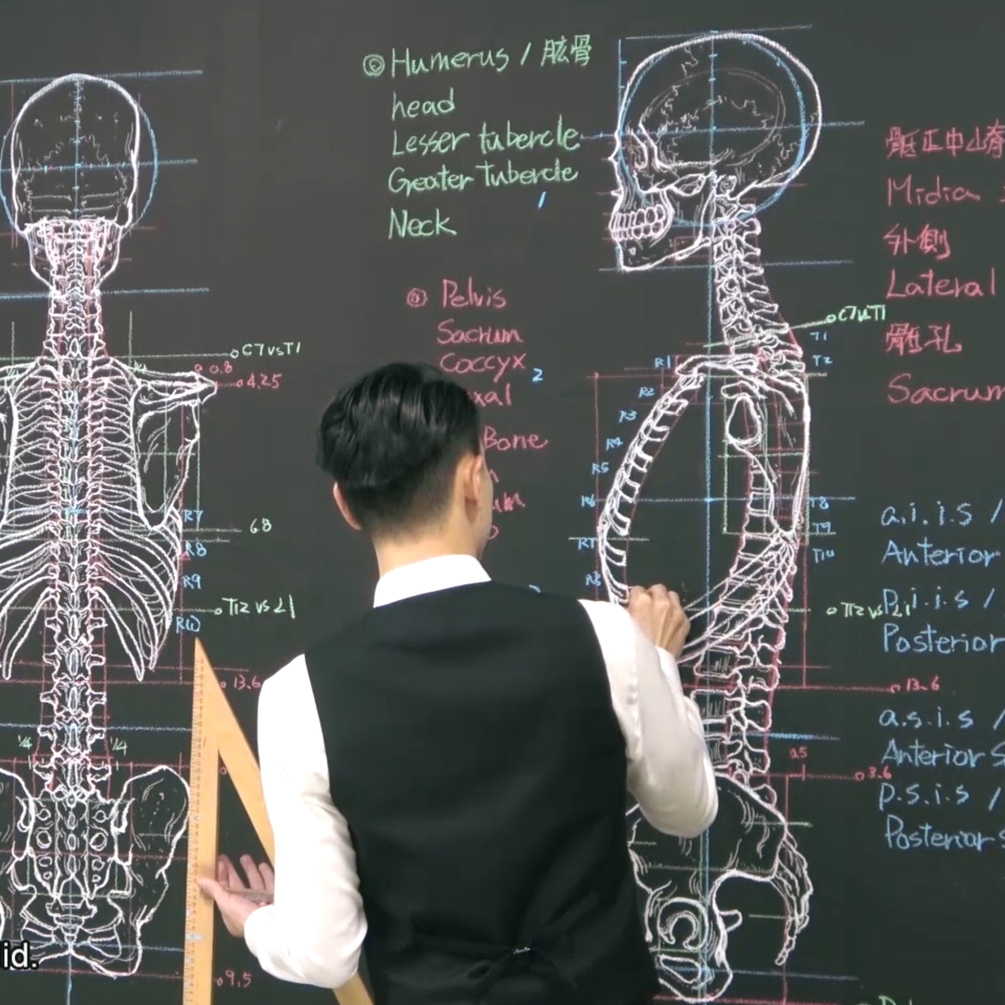 ◎ Humerus / 肱骨
head
Lesser tubercle
Greater tubercle
Neck
◎ Pelvis
Sacrum
Coccyx
2
xal
Bone
C7 vs T1
0.8
4.25
R7
6.8
R8
R9
T12 vs L1
R10
13.6
1/4 1/4
9.5
C7 vs T1
T1
T2
R1
R2
R3
R4
R5
R6
R7
R8
T8
T9
T10
T12 vs L1
13.6
0.5
3.6
正中
Lateral
外側
Sacrum
a.i.i.s /
Anterior
p.i.i.s /
Posterior
a.s.i.s /
Anterior s
p.s.i.s /
Posterior s
id.